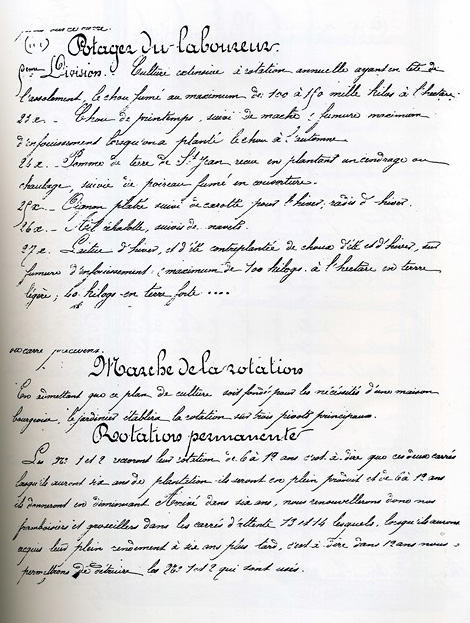 Potager du laboureur.
Division. Culture extensive à rotation annuelle ayant en tête de
l'assolement, le chou fumé au maximum de 100 à 150 mille kilos à l'hectare.
Chou de printemps, suivi de mache ; fumure maximum
d'enfouissement lorsqu'on a planté le chou à l'automne
24e. - Pomme de terre de St Jean recu en plantant un cendrage ou
chaulage, suivie de poireau fumé en couverture.
25e. - Oignon suivi de carotte pour l'hiver, radis d'hiver.
26e. - Ail échalotte, suivis de navets.
27e. - Laitue d'hiver, et d'été contreplantée de choux d'été et d'hiver, sur
fumure d'enfouissement : maximum de 100 kilogs. à l'hectare en terre
légère ; 60 kilogs en terre forte ....
Marche de la rotation
En admettant que ce plan de culture soit fondé pour les nécéssités d'une maison
bourgeoise, le jardinier établira la rotation sur trois pivots principaux.
Rotation permanente
Les Nos 1 et 2 verront leur rotation de 6 à 12 ans c'est à dire que ces deux carrés
lorsqu'ils auront six ans de plantation ils seront en plein produit et de 6 à 12 ans
ils donneront en diminuant dans six ans, nous renouvellerons donc nos
framboisiers et groseillers dans les carrés d'attente 13 et 14 lesquels, lorsqu'ils auront
acquis leur plein rendement à six ans plus tard, c'est à dire dans 12 ans nous
permettrons de détruire les Nos 1 et 2 qui sont usés.